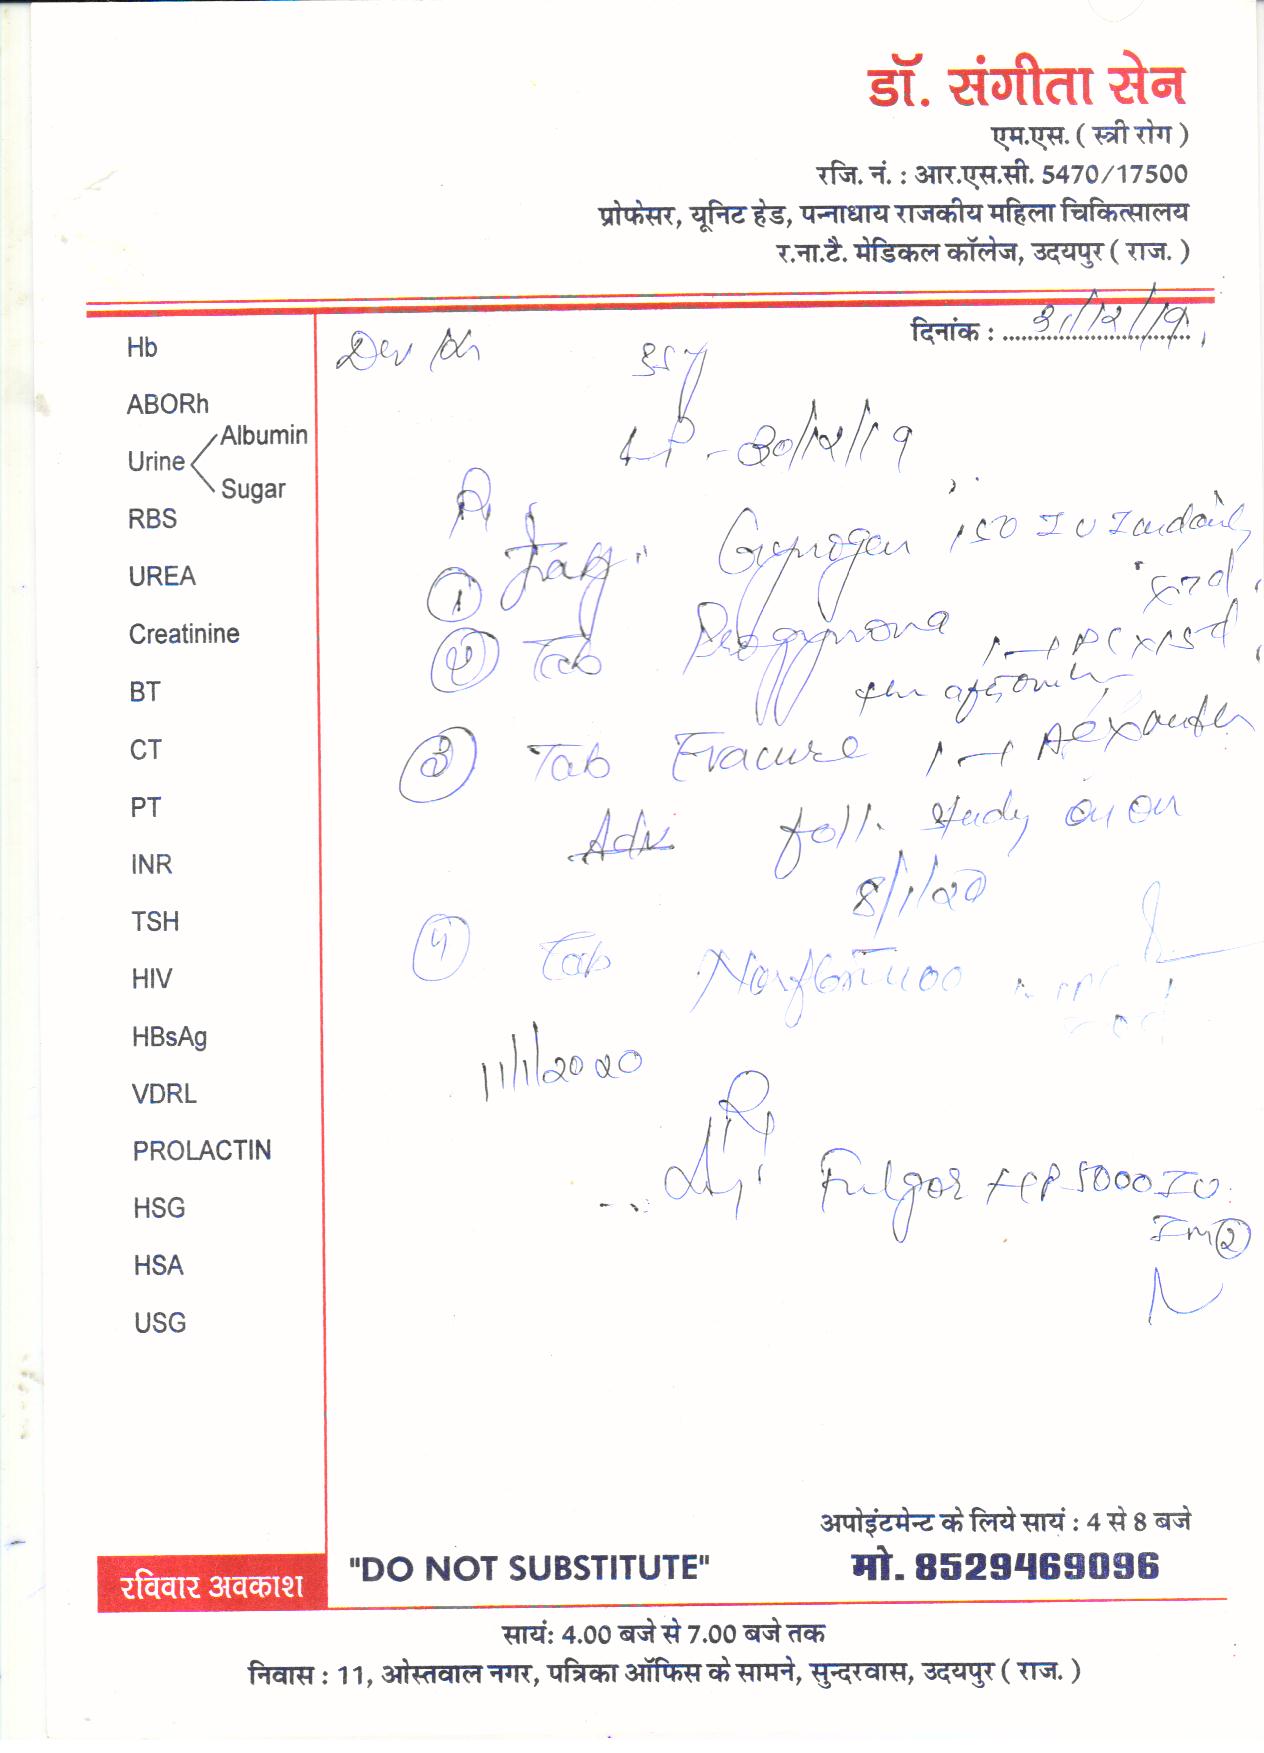 डॉ. संगीता सेन
एम.एस. ( स्त्री रोग )
रजि. नं. : आर.एस.सी. 5470/17500
प्रोफेसर, यूनिट हेड, पन्नाधाय राजकीय महिला चिकित्सालय
र.ना.टै. मेडिकल कॉलेज, उदयपुर ( राज. )
दिनांक : 31/12/19
Hb
ABORh
Urine Albumin
Sugar
RBS
UREA
Creatinine
BT
CT
PT
INR
TSH
HIV
HBsAg
VDRL
PROLACTIN
HSG
HSA
USG
Dev 35y
- 30/12/19
① Gynogen 150 IU
② Tab
③ Tab Evacure
Adv foll. study on
8/1/20
④ Tab
11/1/2020
Inj. Fulgor 5000 IU
IM ②
अपोइंटमेन्ट के लिये सायं : 4 से 8 बजे
रविवार अवकाश
"DO NOT SUBSTITUTE"
मो. 8529469096
सायं: 4.00 बजे से 7.00 बजे तक
निवास : 11, ओस्तवाल नगर, पत्रिका ऑफिस के सामने, सुन्दरवास, उदयपुर ( राज. )